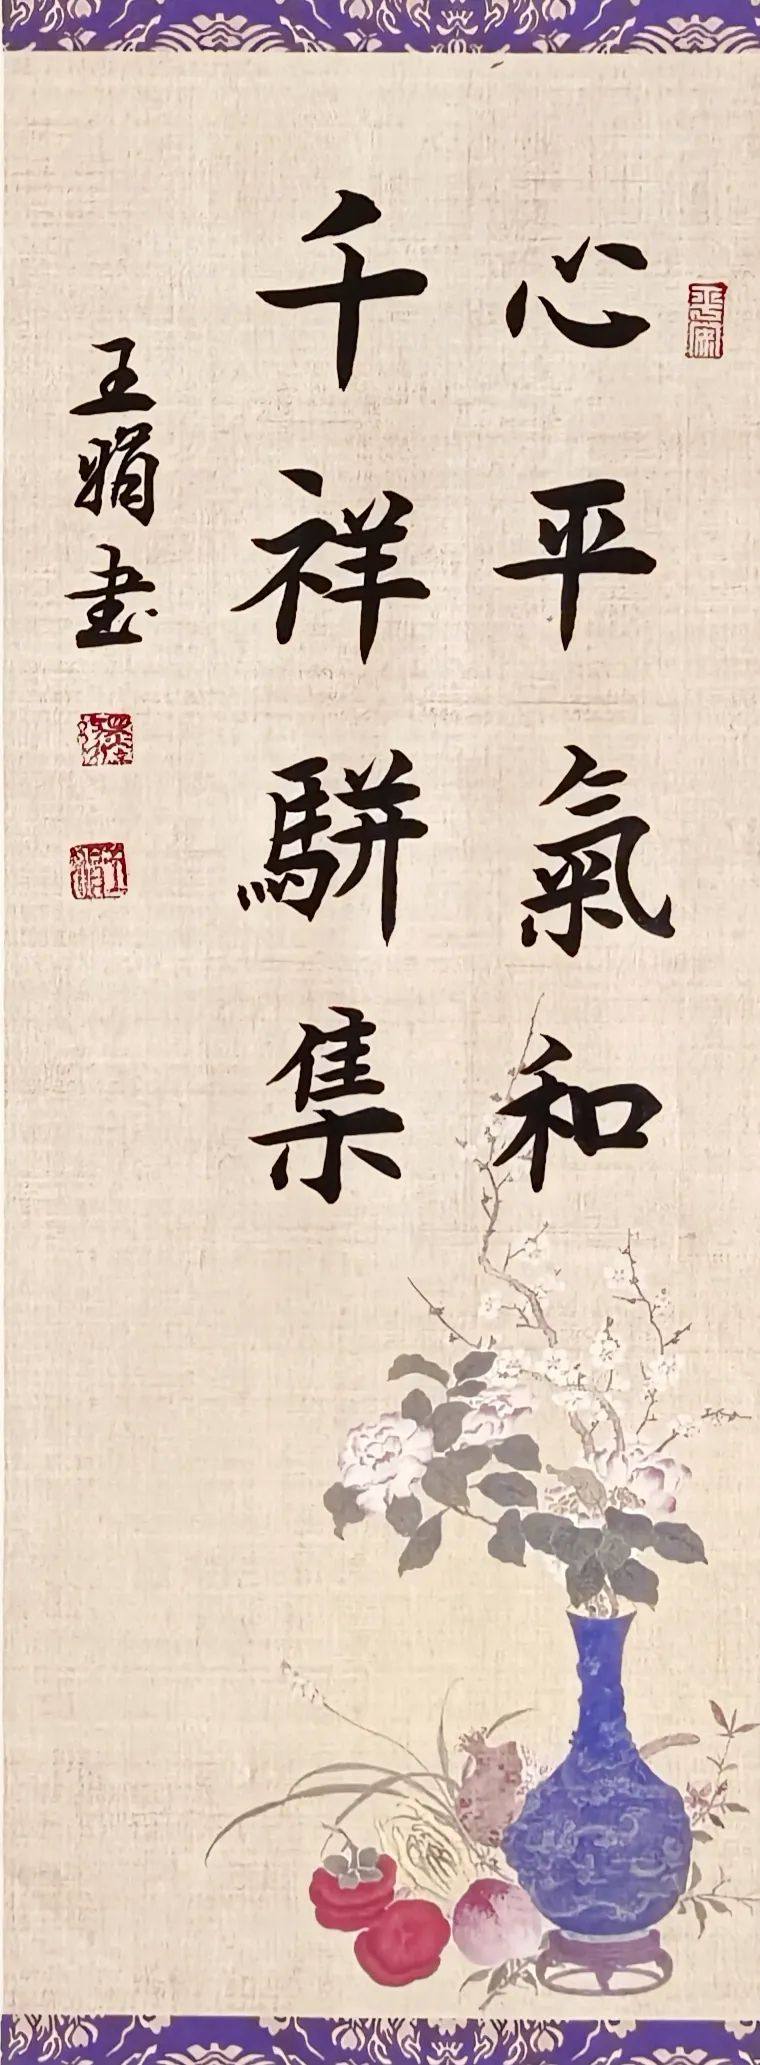 心平氣和
千祥駢集
王娟書